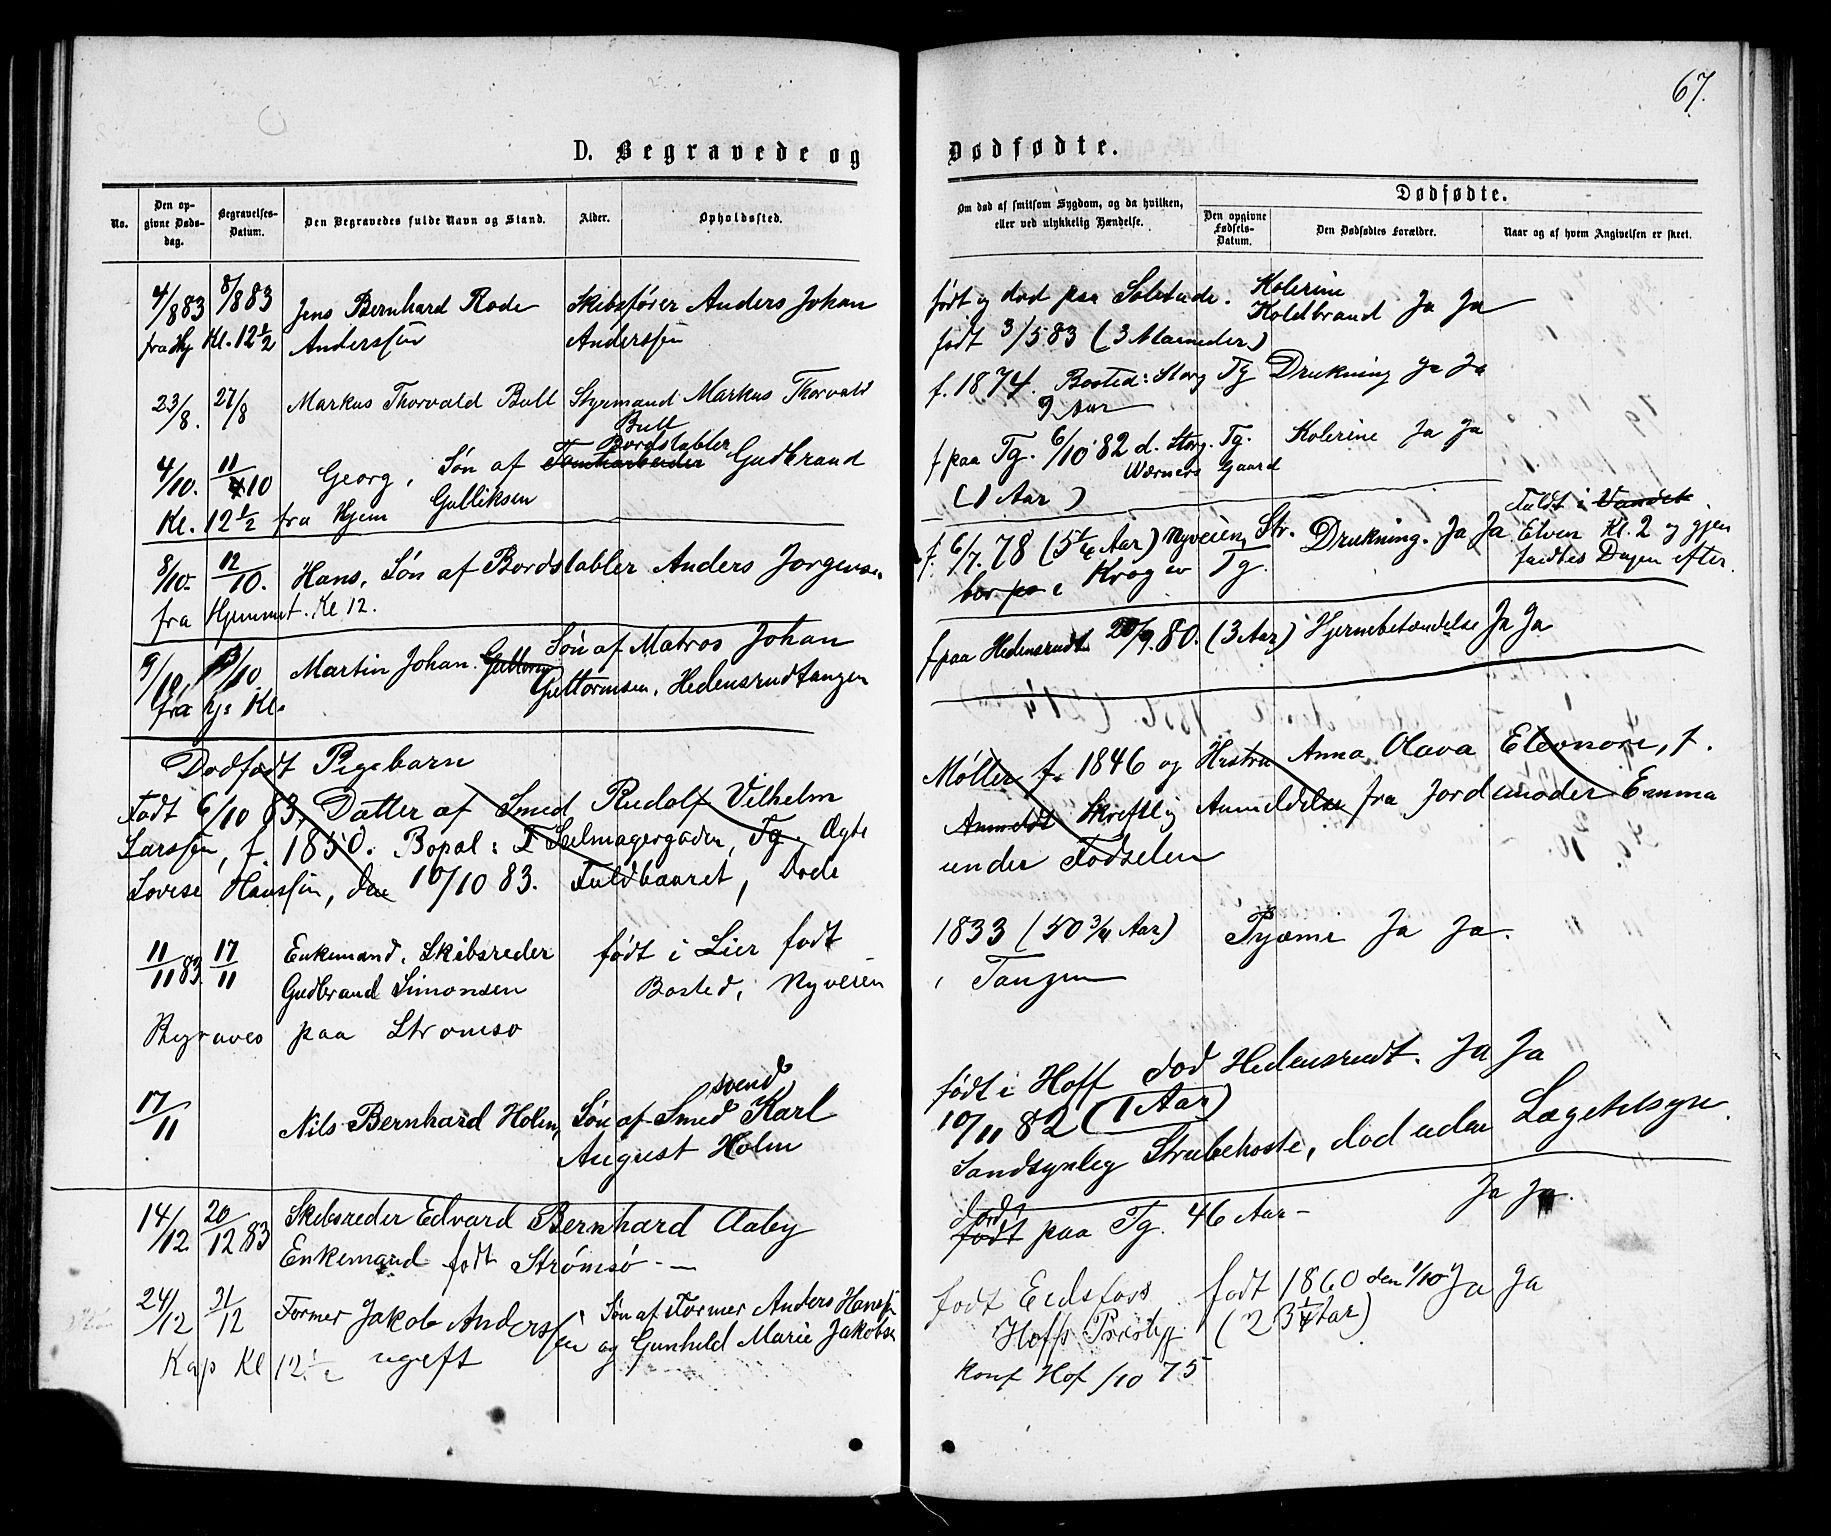 67.
D. Begravede og Dødfødte.
No.
Den opgivne Dødsdag.
Begravelses-Datum.
Den Begravedes fulde Navn og Stand.
Alder.
Opholdssted.
Om død af smitsom Sygdom, og da hvilken, eller ved ulykkelig Hændelse.
Dødfødte.
Den opgivne Fødsels-Datum.
Den Dødfødtes Forældre.
Naar og af hvem Angivelsen er skeet.
4/883 8/883 Jens Bernhard Rode Skibsfører Anders Johan
fra Hj Kl. 12½ Anderssen Anderssen
23/8. 27/8 Markus Thorvald Bull Styrmand Markus Thorvald
Bull
Bordstabler
4/10. 11/10 Georg, Søn af Tomtearbeider Gudbrand
Kl. 12½ fra Hjem Gulliksen
8/10. 12/10. Hans, Søn af Bordstabler Anders Jørgensen
fra Hjemmet. Kl 12.
9/10 13/10 Martin Johan. Søn af Matros Johan
fra Hj. Kl. Guttormsen, Hedensrudtangen
Dødfødt Pigebarn
Født 6/10 83, Datter af Smed Rudolf Vilhelm
Larssen, f. 1850. Bopæl: Selmagergaden, Tg. Ægte
Lovise Hanssen, den 10/10 83. Fuldbaaret, Døde
11/11 83. 17/11 Enkemand, Skibsreder født i Lier født
Gudbrand Simonsen Bosted, Nyveien
Begraves paa Strømsø
svend
17/11 Nils Bernhard Holm, Søn af Smed Karl
August Holm
14/12 20/12 83 Skibsreder Edvard Bernhard Aaby
Enkemand født Strømsø
24/12 31/12 Former Jakob Anderssen Søn af Former Anders Hanssen
Kap Kl 12½ ugift og Gunhild Marie Jakobsen
født og død paa Solstude. Kolerine
Koldbrand Ja Ja
født 3/5 83 (3 Maaneder)
f. 1874. Bosted: Storg Tg Drukning Ja Ja
9 Aar
f paa Tg. 6/10 82 d. Storg. Tg. Kolerine Ja Ja
Wærners Gaard
(1 Aar)
f. 6/7. 78 (5¼ Aar) Nyveien, Str. Drukning. Ja Ja Faldt i Vandet
Elven Kl. 2 og gjen
bor paa i Krog Tg. fandtes Dagen efter.
f paa Hedensrudt 20/9. 80. (3 Aar) Hjernebetændelse Ja Ja
Møller f. 1846 og Hustru Anna Olava Eleonore, f.
Anmeldt Skriftlig Anmeldelse fra Jordmoder Emma
under Fødselen
1833 (50¾ Aar) Pyæmi Ja Ja.
i Tangen
født i Hoff død Hedensrudt. Ja Ja
10/11 82 (1 Aar)
Sandsynlig Strubehoste, død uden Lægetilsyn.
død
født paa Tg. 46 Aar - Ja Ja.
født Eidsfos født 1860 den 1/10 Ja Ja
Hoffs Præstegj (23¼ Aar)
Konf Hof /10 75